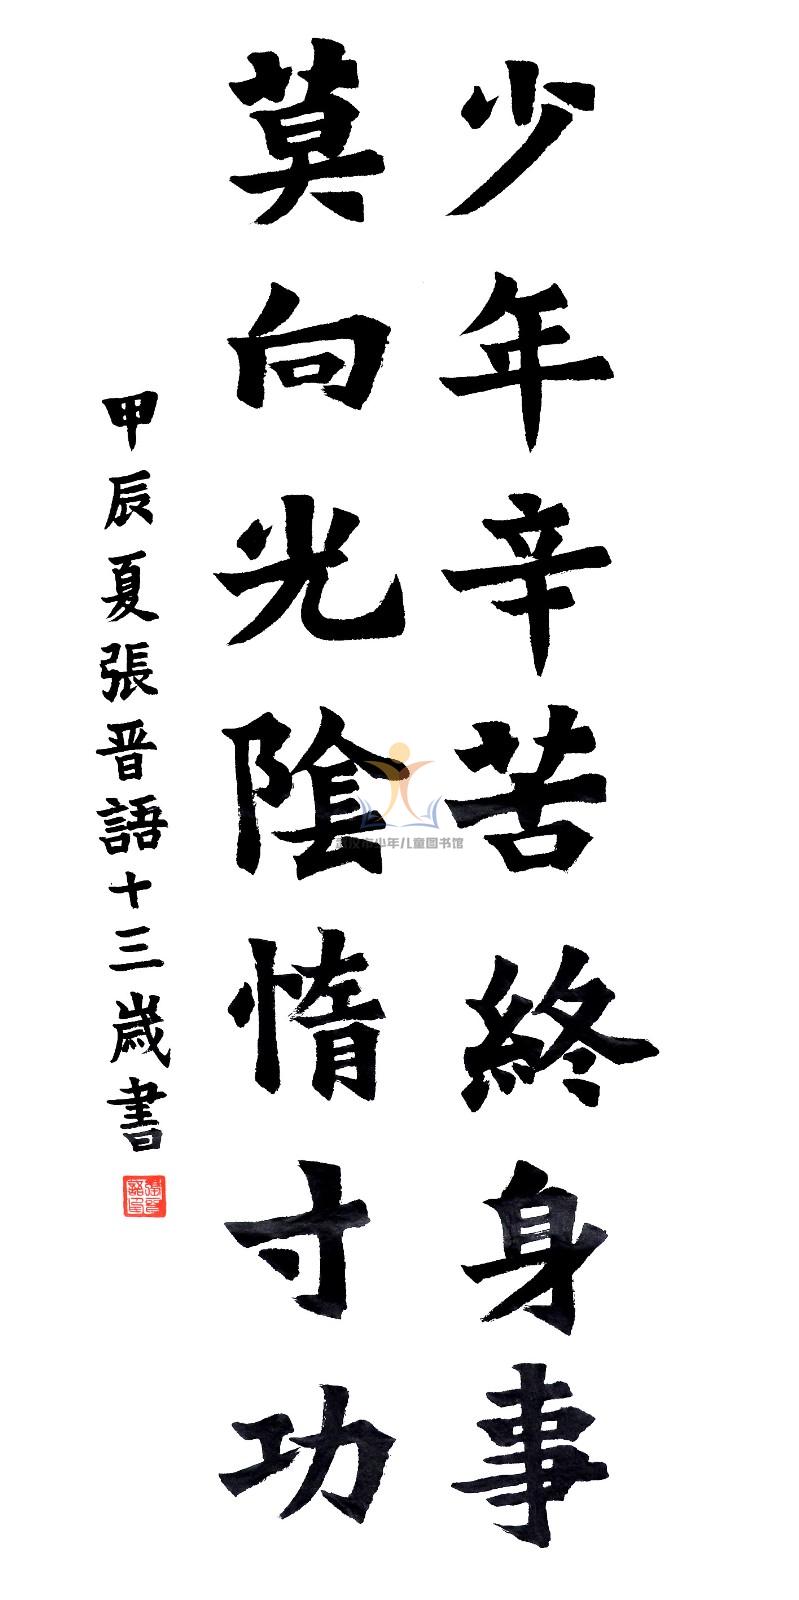 少年辛苦終身事
莫向光陰惰寸功
甲辰夏張晉語十三歲書
少年儿童图书馆